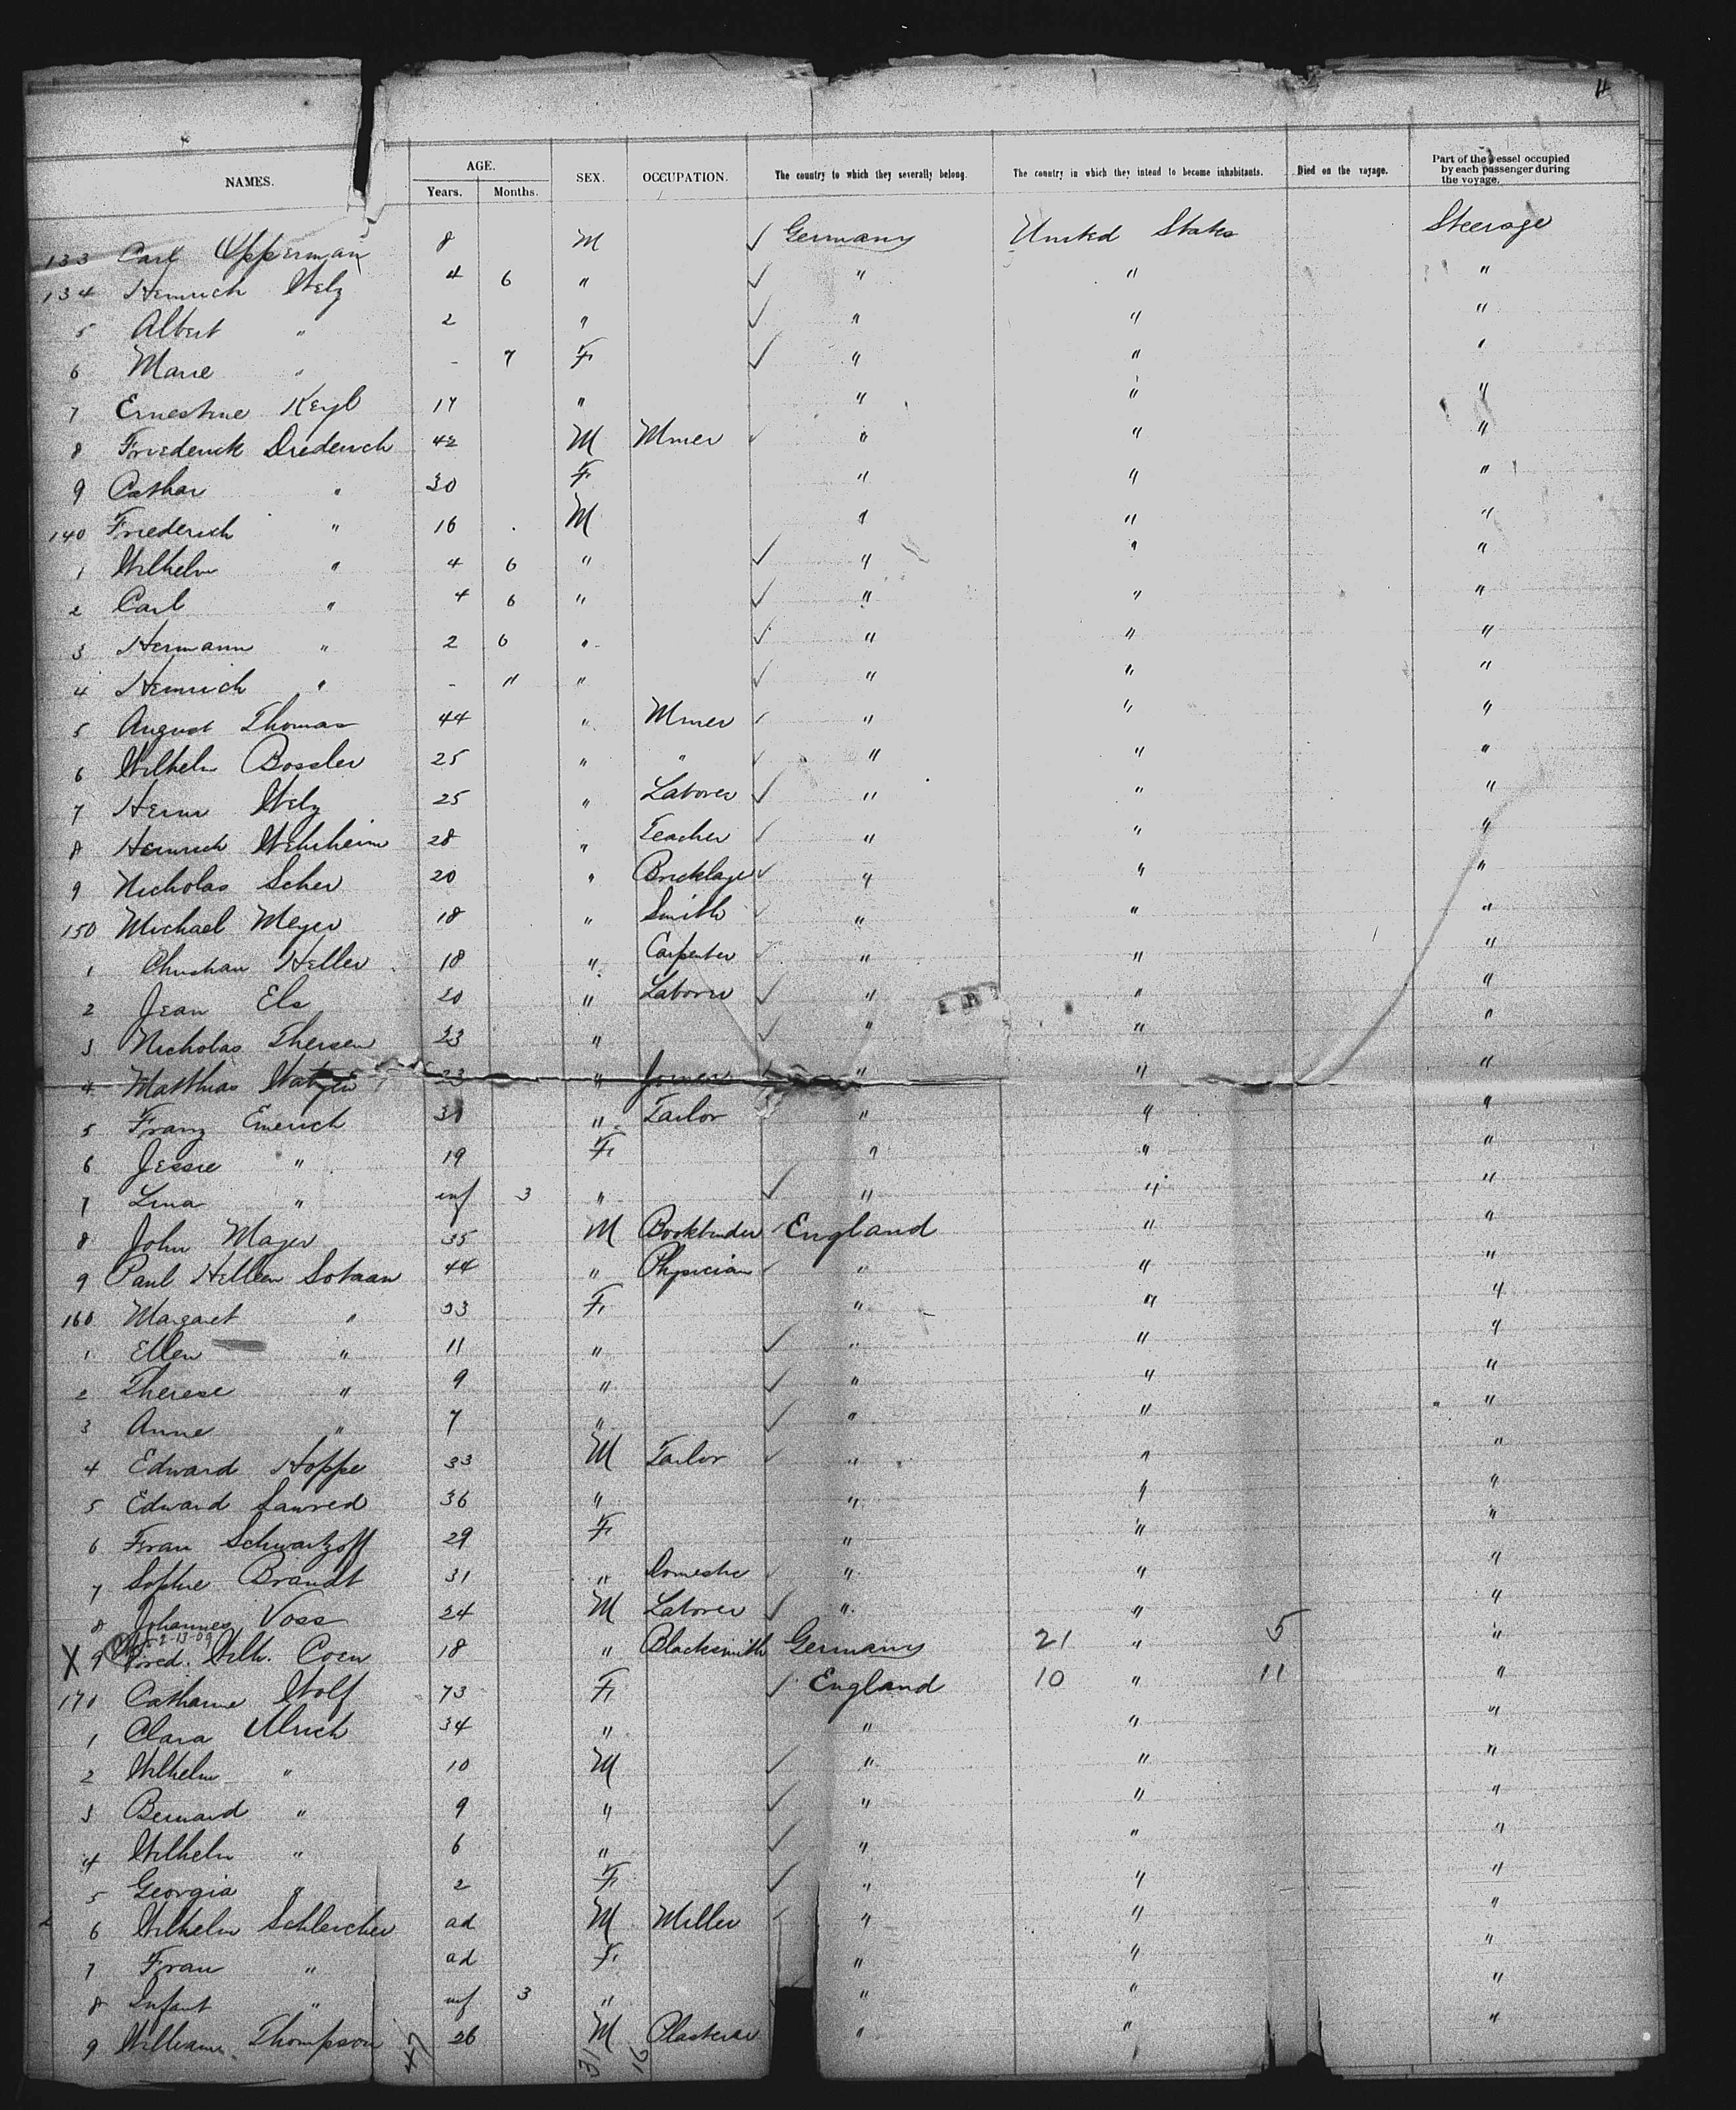 4
NAMES. AGE. Years. Months. SEX. OCCUPATION. The country to which they severally belong. The country in which they intend to become inhabitants. Died on the voyage. Part of the vessel occupied by each passenger during the voyage.
133 Carl Opperman 8 M ✓ Germany United States Steerage
134 Heinrich Welz 4 6 " ✓ " " "
5 Albert " 2 " ✓ " " "
6 Marie " - 7 F ✓ " " "
7 Ernestine Keyl 17 " " " "
8 Friederick Diederich 42 M Miner ✓ " " "
9 Cathar " 30 F " " "
140 Friederich " 16 M " " "
1 Wilhelm " 4 6 " ✓ " " "
2 Carl " 4 6 " ✓ " " "
3 Hermann " 2 6 " ✓ " " "
4 Heinrich " - 11 " ✓ " " "
5 August Thomas 44 " Miner ✓ " " "
6 Wilhelm Bossler 25 " " ✓ " " "
7 Welz 25 " Laborer ✓ " " "
8 Heinrich Wehrheim 28 " Teacher ✓ " " "
9 Nicholas Scher 20 " Bricklayer ✓ " " "
150 Michael Meyer 18 " Smith ✓ " " "
1 Christian Heller 18 " Carpenter ✓ " " "
2 Jean Els 20 " Laborer ✓ " " "
3 Nicholas Thersen 23 " ✓ " " "
4 Matthias 23 " Joiner ✓ " " "
5 Franz Emerich 31 " Tailor " " "
6 Jessie " 19 F " " "
7 Lina " inf 3 " ✓ " " "
8 John Mayer 35 M Bookbinder ✓ England " "
9 Paul Hellem 44 " Physician ✓ " " "
160 Margaret " 33 F " " "
1 Ellen " 11 " ✓ " " "
2 Therese " 9 " ✓ " " "
3 Anne " 7 " ✓ " " "
4 Edward Hoppe 33 M Tailor ✓ " " "
5 Edward 36 " " " "
6 Frau Schwartzoff 29 F " " "
7 Sophie Brandt 31 " Domestic ✓ " " "
8 Johannes Voss 24 M Laborer ✓ " " "
2-13-09
X 9 Fred. Wilh. Coen 18 " Blacksmith Germany 21 " 5 "
170 Catharine Wolf 73 F ✓ England 10 " 11 "
1 Clara Ulrich 34 " " " "
2 Wilhelm " 10 M ✓ " " "
3 Bernard " 9 " ✓ " " "
4 Wilhelm " 6 " ✓ " " "
5 Georgia " 2 F ✓ " " "
6 Wilhelm Schleicher ad M Miller ✓ " " "
7 Frau " ad F " " "
8 Infant " inf 3 " " " "
9 William Thompson 26 M Plasterer " " "
47 31 16